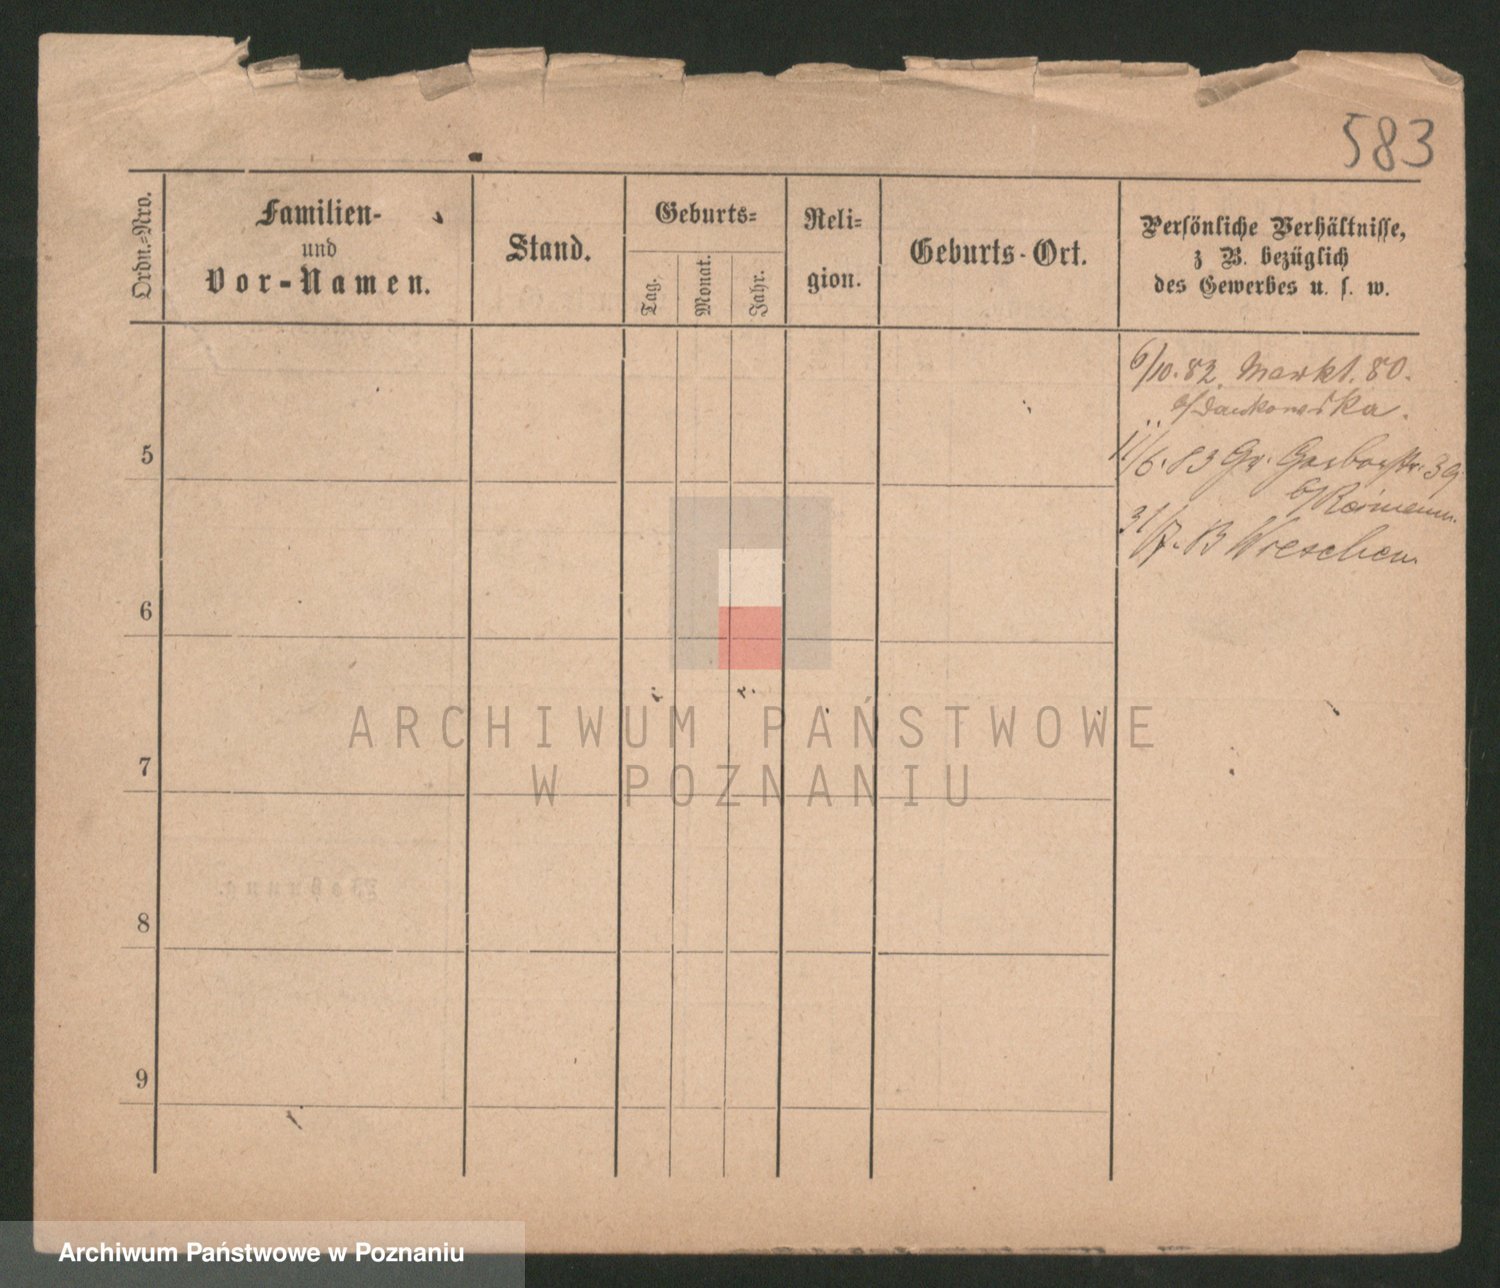 583
Ordn.=Nro.
Familien-
und
Vor-Namen.
Stand.
Geburts=
Tag.
Monat.
Jahr.
Reli=
gion.
Geburts-Ort.
Persönliche Verhältnisse,
z B. bezüglich
des Gewerbes u. s. w.
6/10.82. Markt. 80.
11/6.83 Gr. Gerberstr. 39
31/7.83 Wreschen
5
6
7
8
9
ARCHIWUM PAŃSTWOWE
W POZNANIU
Archiwum Państwowe w Poznaniu